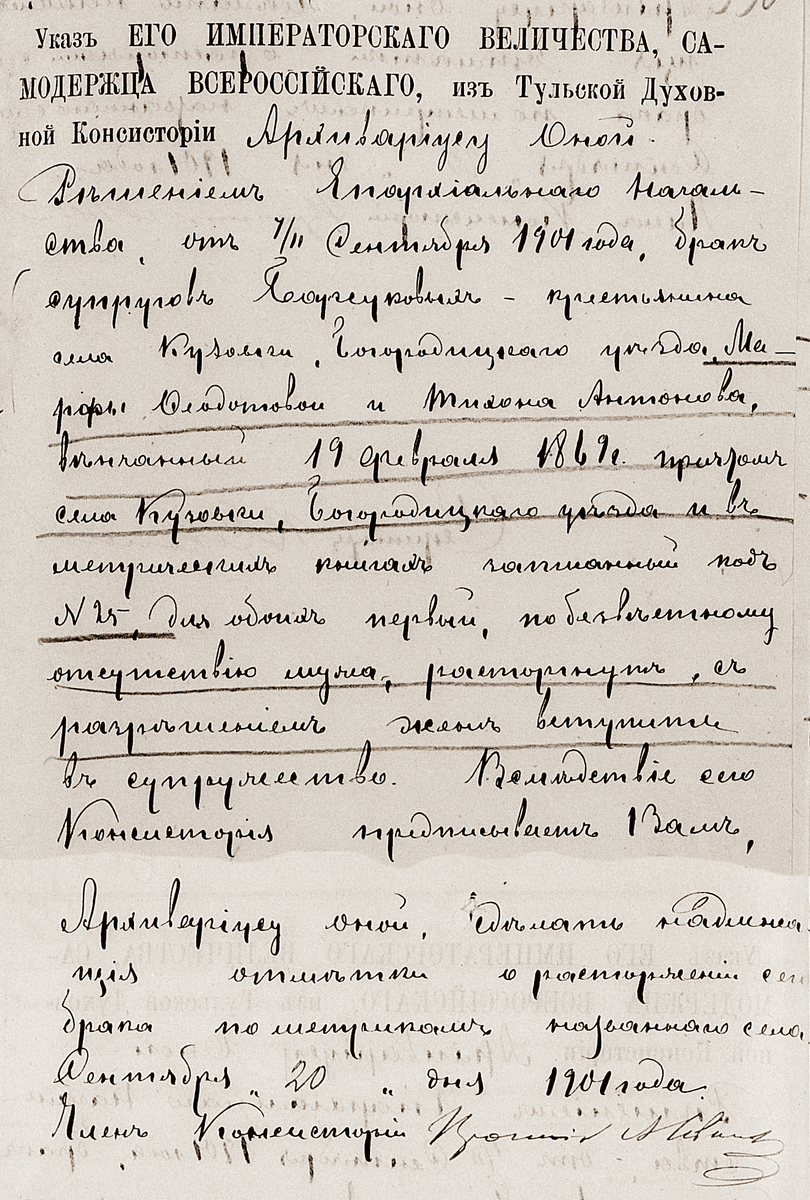 Указъ ЕГО ИМПЕРАТОРСКАГО ВЕЛИЧЕСТВА, СА-
МОДЕРЖЦА ВСЕРОССІЙСКАГО, изъ Тульской Духов-
ной Консисторіи Архиваріусу Оной.
Рѣшеніемъ Епархіальнаго Началь-
ства, отъ 7/11 Сентября 1901 года, бракъ
супруговъ - крестьянина
села Кузовки, Богородицкаго уѣзда, Ма-
рфы Ѳеодотовой и Тихона Антонова,
вѣнчанный 19 февраля 1869 г. причтомъ
села Кузовки, Богородицкаго уѣзда и въ
метрическихъ книгахъ записанный подъ
N 25, для обоихъ первый, по безвѣстному
отсутствію мужа, расторгнутъ, съ
разрѣшеніемъ женѣ вступить
въ супружество. Вслѣдствіе сего
Консисторія предписываетъ Вамъ,
Архиваріусу оной, сдѣлать надлежа-
щія отмѣтки о расторженіи сего
брака по метрикамъ названнаго села.
Сентября „ 20 „ дня 1901 года.
Членъ Консисторіи